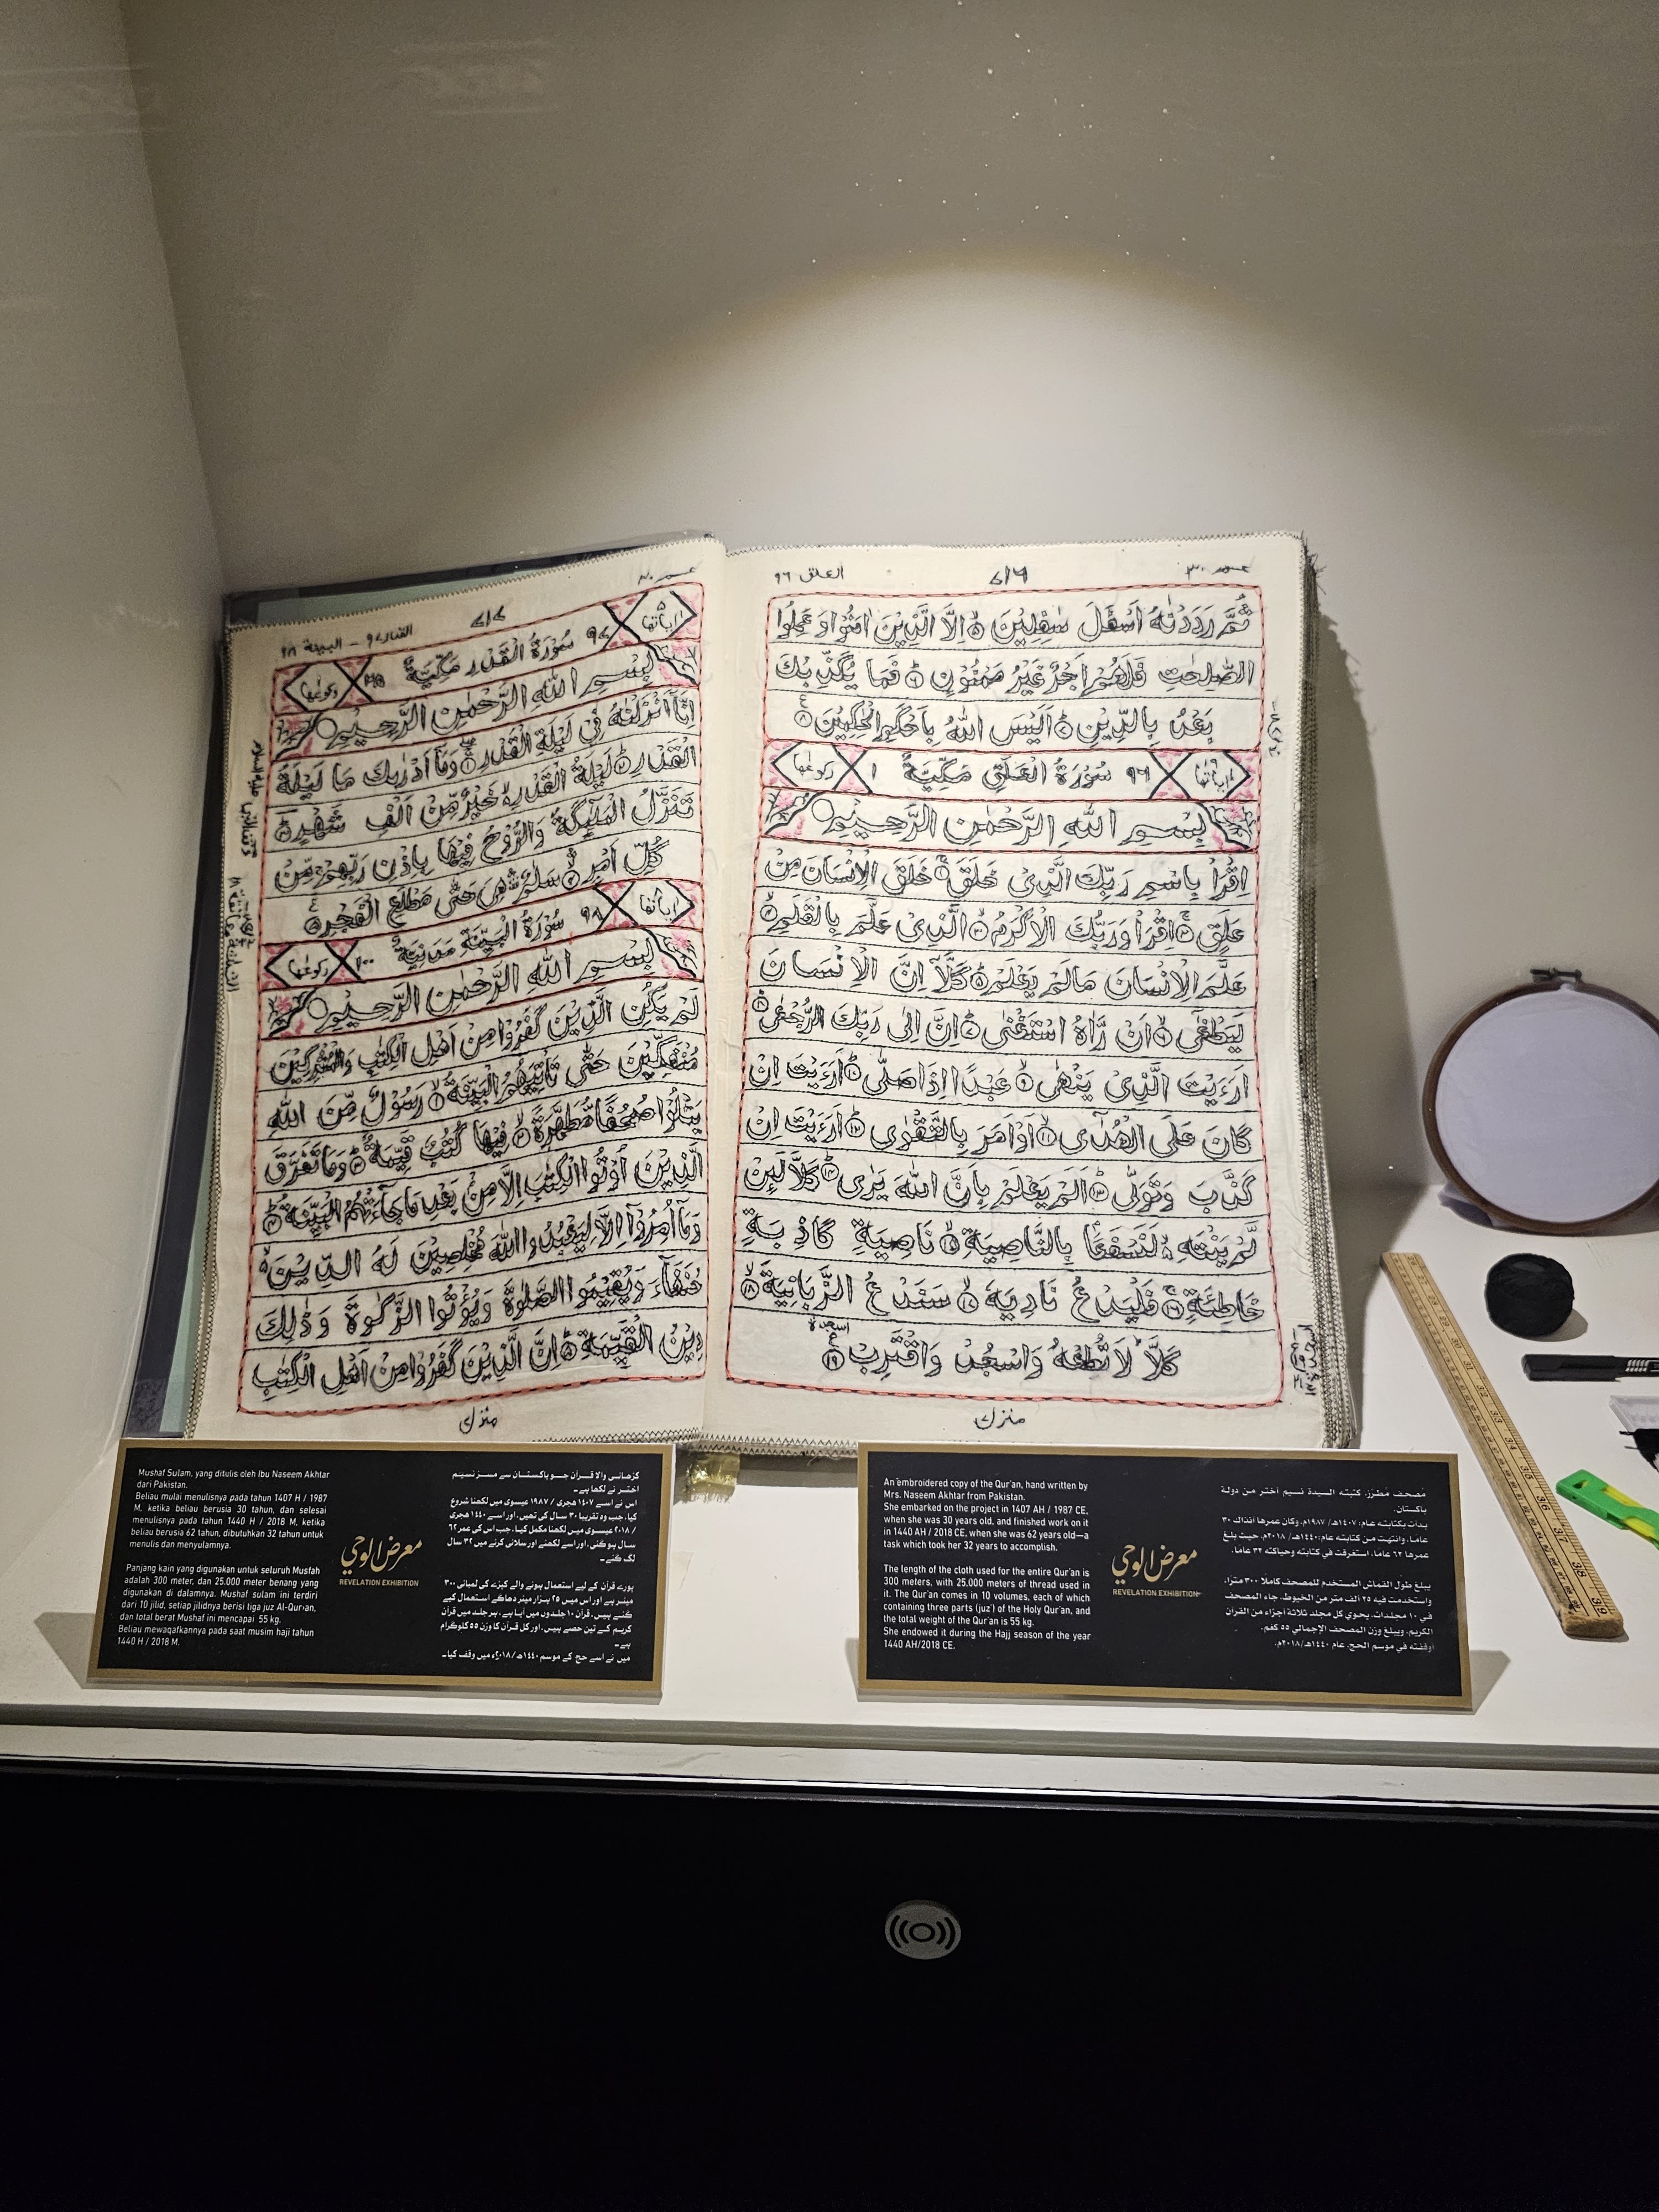 عم ٣٠
٧١٦
العلق ٩٦
ثُمَّ رَدَدْنٰهُ اَسْفَلَ سٰفِلِيْنَ ۝٥ اِلَّا الَّذِيْنَ اٰمَنُوْا وَعَمِلُوا
الصّٰلِحٰتِ فَلَهُمْ اَجْرٌ غَيْرُ مَمْنُوْنٍ ۝٦ فَمَا يُكَذِّبُكَ
بَعْدُ بِالدِّيْنِ ۝٧ اَلَيْسَ اللّٰهُ بِاَحْكَمِ الْحٰكِمِيْنَ ۝٨
٩٦ سُوْرَةُ الْعَلَقِ مَكِّيَّةٌ ١ رکوعها
بِسْمِ اللّٰهِ الرَّحْمٰنِ الرَّحِيْمِ
اِقْرَاْ بِاسْمِ رَبِّكَ الَّذِيْ خَلَقَ ۝١ خَلَقَ الْاِنْسَانَ مِنْ
عَلَقٍ ۝٢ اِقْرَاْ وَرَبُّكَ الْاَكْرَمُ ۝٣ الَّذِيْ عَلَّمَ بِالْقَلَمِ ۝٤
عَلَّمَ الْاِنْسَانَ مَا لَمْ يَعْلَمْ ۝٥ كَلَّآ اِنَّ الْاِنْسَانَ
لَيَطْغٰٓى ۝٦ اَنْ رَّاٰهُ اسْتَغْنٰى ۝٧ اِنَّ اِلٰى رَبِّكَ الرُّجْعٰى ۝٨
اَرَءَيْتَ الَّذِيْ يَنْهٰى ۝٩ عَبْدًا اِذَا صَلّٰى ۝١٠ اَرَءَيْتَ اِنْ
كَانَ عَلَى الْهُدٰٓى ۝١١ اَوْ اَمَرَ بِالتَّقْوٰى ۝١٢ اَرَءَيْتَ اِنْ
كَذَّبَ وَتَوَلّٰى ۝١٣ اَلَمْ يَعْلَمْ بِاَنَّ اللّٰهَ يَرٰى ۝١٤ كَلَّا لَئِنْ
لَّمْ يَنْتَهِ لَنَسْفَعًا بِالنَّاصِيَةِ ۝١٥ نَاصِيَةٍ كَاذِبَةٍ
خَاطِئَةٍ ۝١٦ فَلْيَدْعُ نَادِيَهٗ ۝١٧ سَنَدْعُ الزَّبَانِيَةَ ۝١٨
كَلَّا لَا تُطِعْهُ وَاسْجُدْ وَاقْتَرِبْ ۝١٩
السجدة
منزل ٧
عم ٣٠
٧١٧
القدر ٩٧ – البينة ٩٨
اٰياتها ٥ ٩٧ سُوْرَةُ الْقَدْرِ مَكِّيَّةٌ ٢٥ رکوعها
بِسْمِ اللّٰهِ الرَّحْمٰنِ الرَّحِيْمِ
اِنَّآ اَنْزَلْنٰهُ فِيْ لَيْلَةِ الْقَدْرِ ۝١ وَمَآ اَدْرٰىكَ مَا لَيْلَةُ
الْقَدْرِ ۝٢ لَيْلَةُ الْقَدْرِ خَيْرٌ مِّنْ اَلْفِ شَهْرٍ ۝٣
تَنَزَّلُ الْمَلٰٓئِكَةُ وَالرُّوْحُ فِيْهَا بِاِذْنِ رَبِّهِمْ مِّنْ
كُلِّ اَمْرٍ ۝٤ سَلٰمٌ هِيَ حَتّٰى مَطْلَعِ الْفَجْرِ ۝٥
اٰياتها ٨ ٩٨ سُوْرَةُ الْبَيِّنَةِ مَدَنِيَّةٌ ١٠٠ رکوعها
بِسْمِ اللّٰهِ الرَّحْمٰنِ الرَّحِيْمِ
لَمْ يَكُنِ الَّذِيْنَ كَفَرُوْا مِنْ اَهْلِ الْكِتٰبِ وَالْمُشْرِكِيْنَ
مُنْفَكِّيْنَ حَتّٰى تَاْتِيَهُمُ الْبَيِّنَةُ ۝١ رَسُوْلٌ مِّنَ اللّٰهِ
يَتْلُوْا صُحُفًا مُّطَهَّرَةً ۝٢ فِيْهَا كُتُبٌ قَيِّمَةٌ ۝٣ وَمَا تَفَرَّقَ
الَّذِيْنَ اُوْتُوا الْكِتٰبَ اِلَّا مِنْۢ بَعْدِ مَا جَآءَتْهُمُ الْبَيِّنَةُ ۝٤
وَمَآ اُمِرُوْٓا اِلَّا لِيَعْبُدُوا اللّٰهَ مُخْلِصِيْنَ لَهُ الدِّيْنَ
حُنَفَآءَ وَيُقِيْمُوا الصَّلٰوةَ وَيُؤْتُوا الزَّكٰوةَ وَذٰلِكَ
دِيْنُ الْقَيِّمَةِ ۝٥ اِنَّ الَّذِيْنَ كَفَرُوْا مِنْ اَهْلِ الْكِتٰبِ
منزل ٧
Mushaf Sulam, yang ditulis oleh Ibu Naseem Akhtar
dari Pakistan.
Beliau mulai menulisnya pada tahun 1407 H / 1987
M, ketika beliau berusia 30 tahun, dan selesai
menulisnya pada tahun 1440 H / 2018 M, ketika
beliau berusia 62 tahun, dibutuhkan 32 tahun untuk
menulis dan menyulamnya.
Panjang kain yang digunakan untuk seluruh Musfah
adalah 300 meter, dan 25.000 meter benang yang
digunakan di dalamnya. Mushaf sulam ini terdiri
dari 10 jilid, setiap jilidnya berisi tiga juz Al-Qur›an,
dan total berat Mushaf ini mencapai 55 kg.
Beliau mewaqafkannya pada saat musim haji tahun
1440 H / 2018 M.
معرض الوحي
REVELATION EXHIBITION
کڑھائی والا قرآن جو پاکستان سے مسز نسیم
اختر نے لکھا ہے۔
اس نے اسے ١٤٠٧ ہجری / ١٩٨٧ عیسوی میں لکھنا شروع
کیا، جب وہ تقریبا ٣٠ سال کی تھیں، اور اسے ١٤٤٠ ہجری
/ ٢٠١٨ عیسوی میں لکھنا مکمل کیا، جب اس کی عمر ٦٢
سال ہو گئی، اور اسے لکھنے اور سلائی کرنے میں ٣٢ سال
لگ گئے۔
پورے قرآن کے لیے استعمال ہونے والے کپڑے کی لمبائی ٣٠٠
میٹر ہے اور اس میں ٢٥ ہزار میٹر دھاگے استعمال کیے
گئے ہیں، قرآن ١٠ جلدوں میں آیا ہے، ہر جلد میں قرآن
کریم کے تین حصے ہیں، اور کل قرآن کا وزن ٥٥ کلوگرام
ہے۔
میں نے اسے حج کے موسم ١٤٤٠ھ/٢٠١٨ء میں وقف کیا۔
An embroidered copy of the Qur'an, hand written by
Mrs. Naseem Akhtar from Pakistan.
She embarked on the project in 1407 AH / 1987 CE,
when she was 30 years old, and finished work on it
in 1440 AH / 2018 CE, when she was 62 years old—a
task which took her 32 years to accomplish.
The length of the cloth used for the entire Qur'an is
300 meters, with 25,000 meters of thread used in
it. The Qur'an comes in 10 volumes, each of which
containing three parts (juz') of the Holy Qur'an, and
the total weight of the Qur'an is 55 kg.
She endowed it during the Hajj season of the year
1440 AH/2018 CE.
معرض الوحي
REVELATION EXHIBITION
مصحف مُطرّز، كتبته السيدة نسيم اختر من دولة
باكستان.
بدأت بكتابته عام: ١٤٠٧هـ/ ١٩٨٧م، وكان عمرها آنذاك ٣٠
عاما، وانتهت من كتابته عام: ١٤٤٠هـ/ ٢٠١٨م، حيث بلغ
عمرها ٦٢ عاما، استغرقت في كتابته وحياكته ٣٢ عاما.
يبلغ طول القماش المستخدم للمصحف كاملا ٣٠٠ مترا،
واستخدمت فيه ٢٥ ألف متر من الخيوط، جاء المصحف
في ١٠ مجلدات، يحوي كل مجلد ثلاثة أجزاء من القرآن
الكريم، ويبلغ وزن المصحف الإجمالي ٥٥ كغم.
أوقفته في موسم الحج، عام ١٤٤٠هـ/٢٠١٨م.